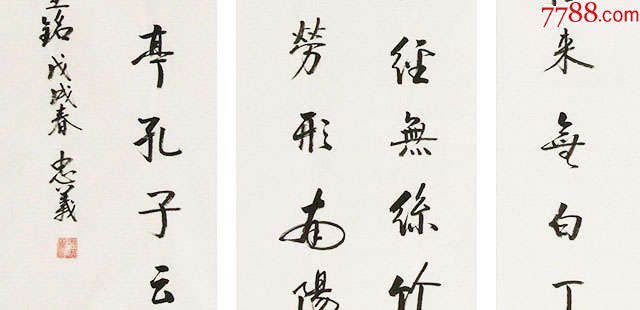 7788.com
来無白丁
經無絲竹
勞形南陽
亭孔子云
銘戊戌春忠義